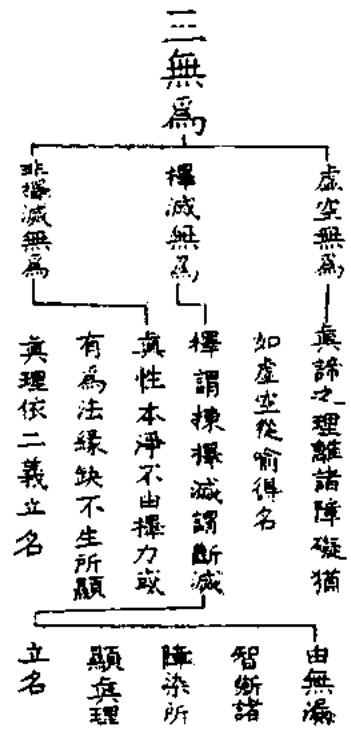 三無為
虛空無為
真諦之理離諸障礙猶
如虛空從喻得名
擇滅無為
擇謂揀擇滅謂斷滅
由無漏
智斷諸
障染所
顯真理
立名
非擇滅無為
真性本淨不由擇力或
有為法緣缺不生所顯
真理依二義立名